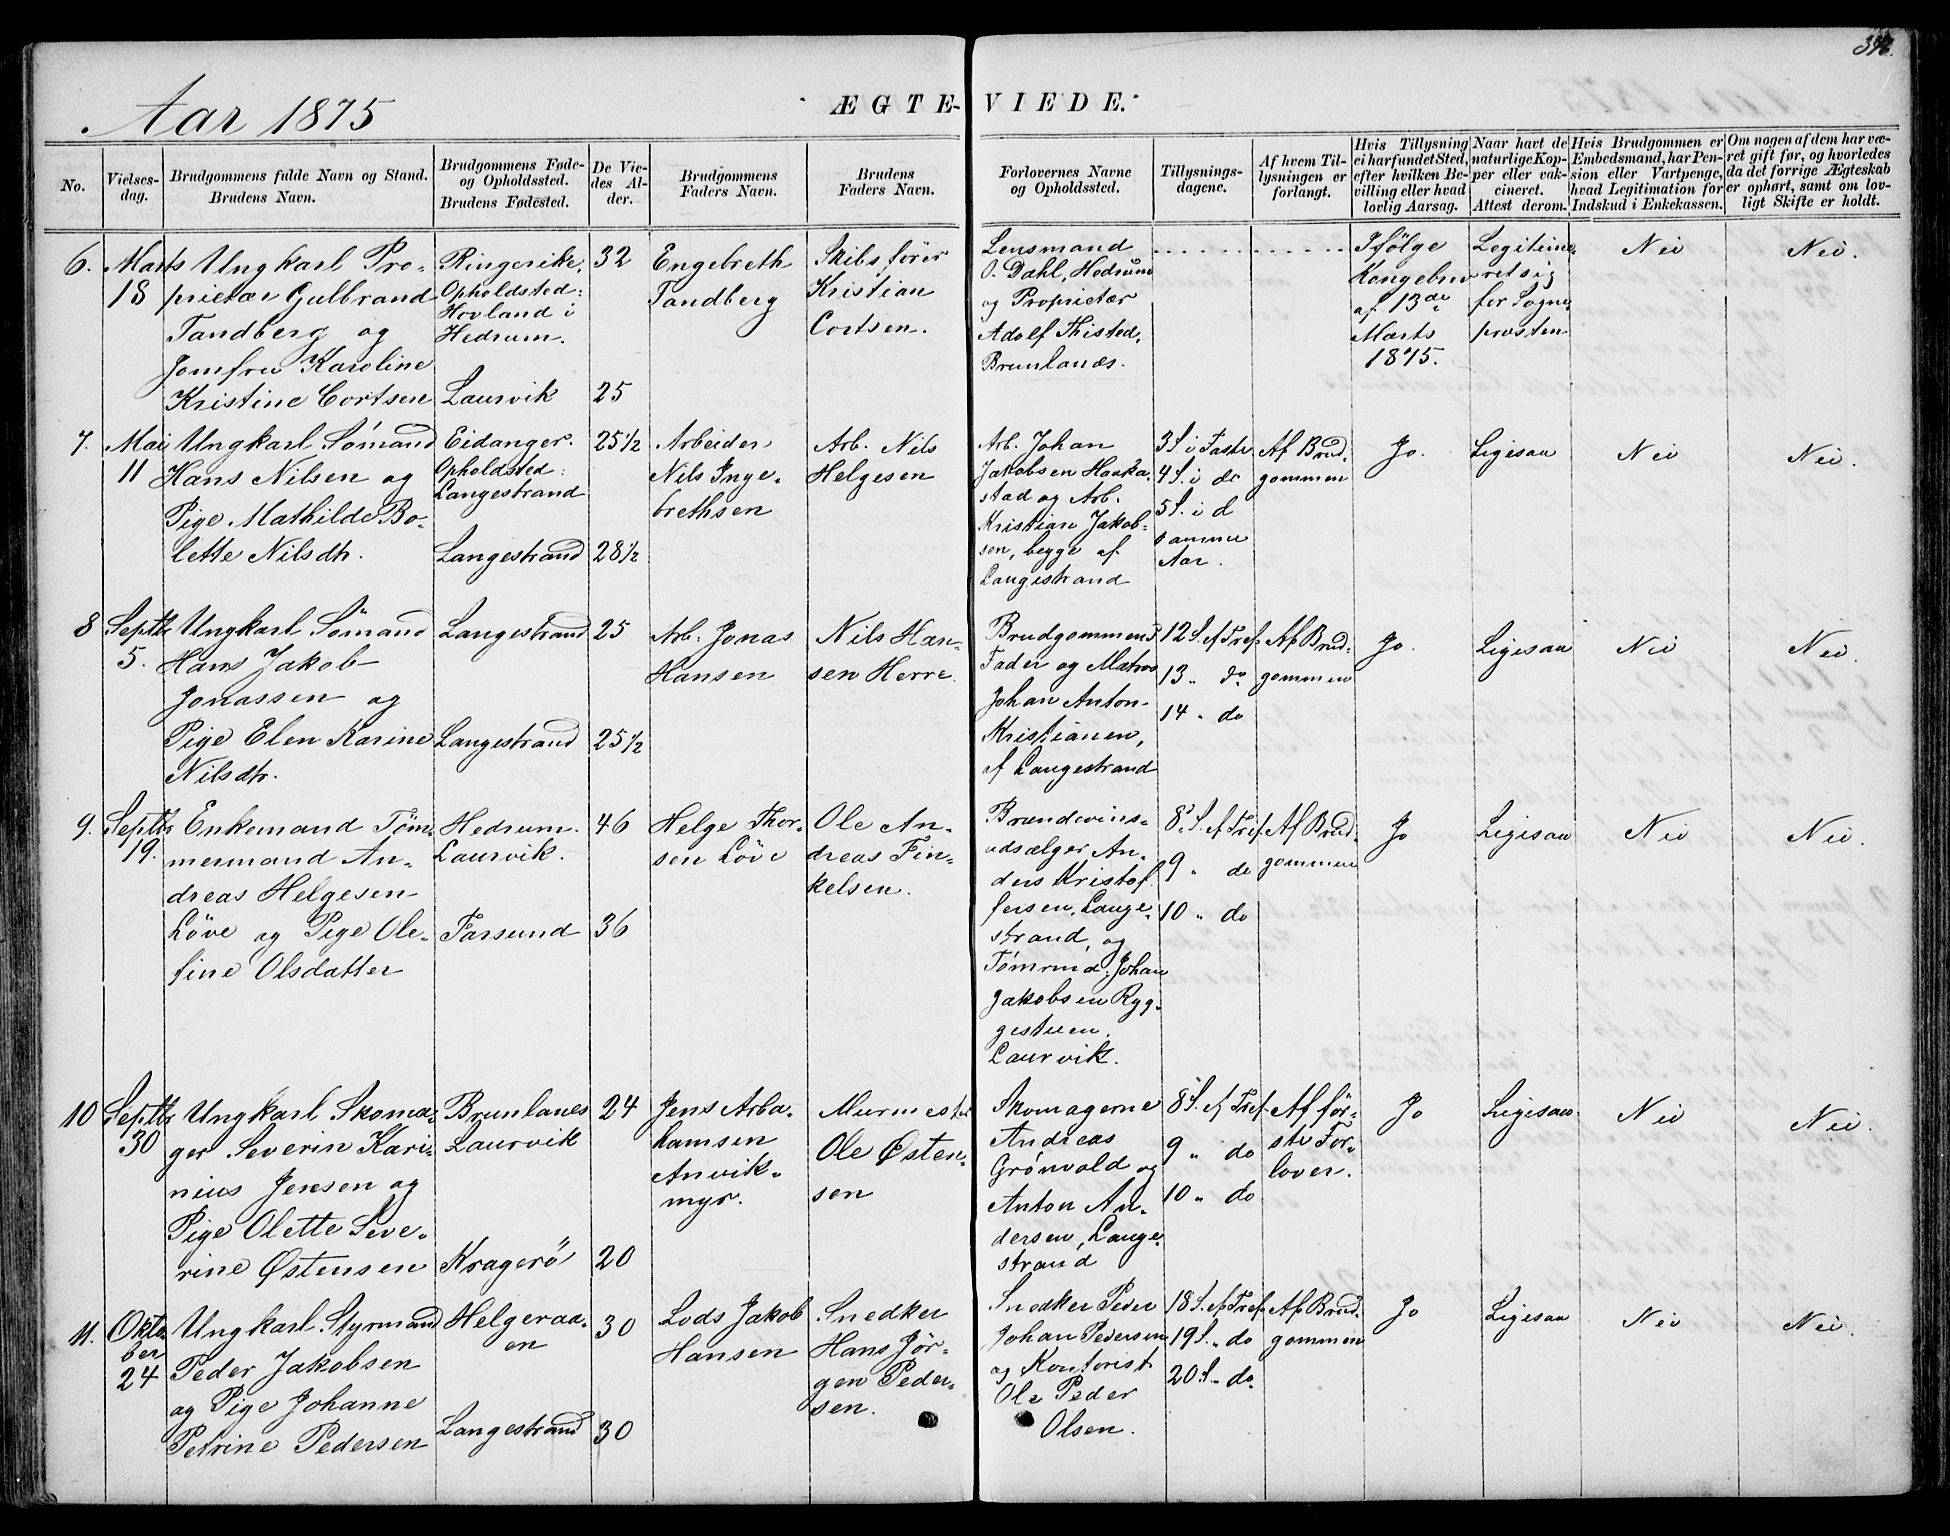 342.
Aar 1875
ÆGTE-VIEDE.
No.
Vielses-
dag.
Brudgommens fulde Navn og Stand.
Brudens Navn.
Brudgommens Føde-
og Opholdssted.
Brudens Fødested.
De Vie-
des Al-
der.
Brudgommens
Faders Navn.
Brudens
Faders Navn.
Forlovernes Navne
og Opholdssted.
Tillysnings-
dagene.
Af hvem Til-
lysningen er
forlangt.
Hvis Tillysning
ei har fundet Sted,
efter hvilken Be-
villing eller hvad
lovlig Aarsag.
Naar havt de
naturlige Kop-
per eller vak-
cineret.
Attest derom.
Hvis Brudgommen er
Embedsmand, har Pen-
sion eller Vartpenge,
hvad Legitimation for
Indskud i Enkekassen.
Om nogen af dem har væ-
ret gift før, og hvorledes
da det forrige Ægteskab
er ophørt, samt om lov-
ligt Skifte er holdt.
6.
Marts
18
Ungkarl Pro-
prietær Gulbrand
Tandberg og
Jomfru Karoline
Kristine Cortsen
Ringerike,
Opholdsted:
Hovland i
Hedrum.
Laurvik
32
25
Engebreth
Tandberg
Skibsfører
Kristian
Cortsen.
Lensmand
O. Dahl, Hedrum
og Proprietær
Adolf Thisted,
Brunlanæs.
Ifølge
Kongebrev
af 13de
Marts
1875.
Legitime-
ret sig
for Sogne-
præsten
Nei
Nei.
7.
Mai
11
Ungkarl Sömand
Hans Nilsen og
Pige Mathilde Bo-
lette Nilsdtr.
Eidanger.
Opholdsted:
Langestrand
Langestrand
25 1/2
28 1/2
Arbeider
Nils Inge-
brethsen
Arb. Nils
Helgesen
Arb. Johan
Jakobsen Haaka-
stad og Arb.
Kristian Jakob-
sen, begge af
Langestrand
3 S. i Faste
4 S. i do
5 S. i d
samme
Aar.
Af Brud-
gommen
Jo.
Ligesaa
Nei
Nei.
8
Septbr
5.
Ungkarl Sömand
Hans Jakob
Jonassen og
Pige Elen Karine
Nilsdtr.
Langestrand
Langestrand
25
25 1/2
Arb. Jonas
Hansen
Nils Han-
sen Herre.
Brudgommens
Fader og Matros
Johan Anton
Kristiansen,
af Langestrand
12 S. ef Tref.
13 " do
14 " do
Af Brud-
gommen
Jo.
Ligesaa
Nei
Nei.
9.
Septbr
19.
Enkemand Tøm-
mermand An-
dreas Helgesen
Löve og Pige Ole-
fine Olsdatter
Hedrum.
Laurvik.
Farsund
46
36
Helge Thor-
sen Löve
Ole An-
dreas Fin-
kelsen.
Brændevins-
udsælger An-
ders Kristof-
fersen, Lange-
strand, og
Tömrmd. Johan
Jakobsen Ryg-
gestuen,
Laurvik.
8 S. ef Tref.
9 " do
10 " do
Af Brud-
gommen
Jo
Ligesaa
Nei
Nei.
10
Septbr
30
Ungkarl Skoma-
ger Severin Kari-
nius Jensen og
Pige Olette Seve-
rine Østensen
Brunlanes
Laurvik
Kragerö
24
20
Jens Arba-
hamsen
Anvik-
myr.
Murmester
Ole Østen-
sen
Skomagerne
Andreas
Grönvold og
Anton An-
dersen, Lange-
strand
8 S. ef Tref.
9 " do
10 " do
Af før-
ste For-
lover.
Jo
Ligesaa
Nei
Nei.
11.
Okto-
ber
24
Ungkarl Styrmand
Peder Jakobsen
og Pige Johanne
Petrine Pedersen
Helgeraa-
en
Langestrand
30
30
Lods Jakob
Hansen
Snedker
Hans Jör-
gen Peder-
sen.
Snedker Peder
Johan Pedersen
og Kontorist
Ole Peder
Olsen.
18 S. ef Tref.
19 S. " do
20 S. " do.
Af Brud-
gommen
Jo
Ligesaa
Nei
Nei.